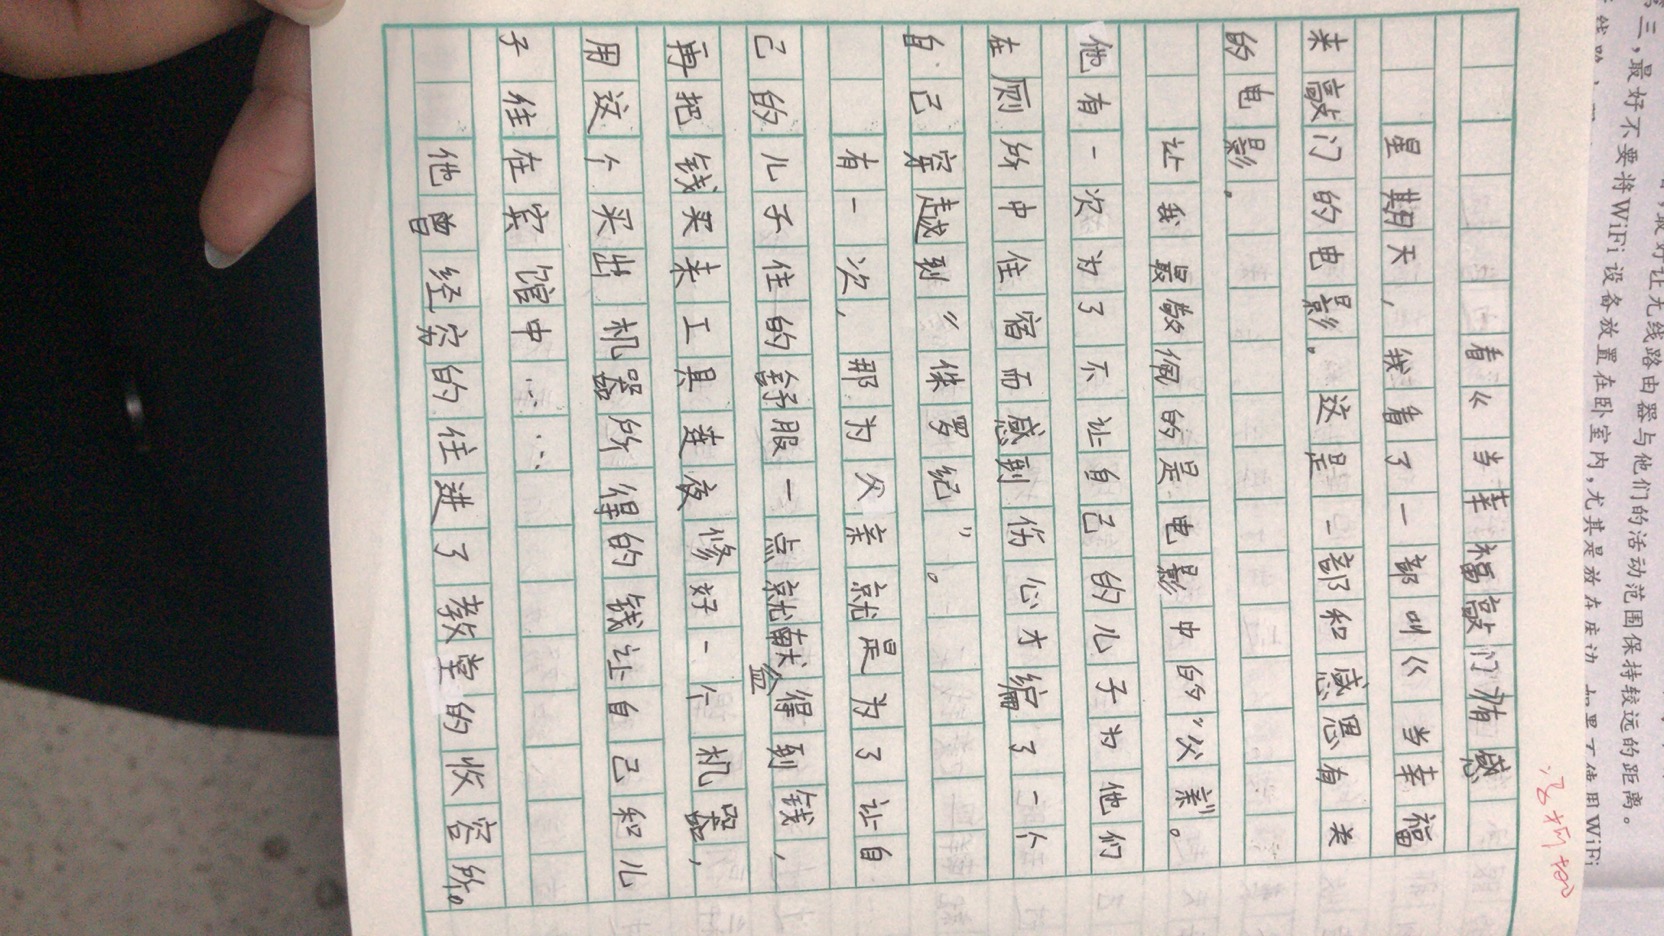 三，最好不要将WiFi设备放置在卧室内，尤其是放在床边，如果不使用WiFi
最好让无线路由器与他们的活动范围保持较远的距离。
看《当幸福敲门》有感
星期天，我看了一部叫《当幸福
来敲门的电影。这是一部和感恩有关
的电影。
让我最敬佩的是电影中的“父亲”。
他有一次为了不让自己的儿子为他们
在厕所中住宿而感到伤心才编了一个
自己穿越到“侏罗纪”。
有一次，那为父亲就是为了让自
己的儿子住的舒服一点就献血得到钱，
再把钱买来工具连夜修好一个机器，
用这个买出机器所得的钱让自己和儿
子住在宾馆中……
他曾经穷的住进了教堂的收容所。